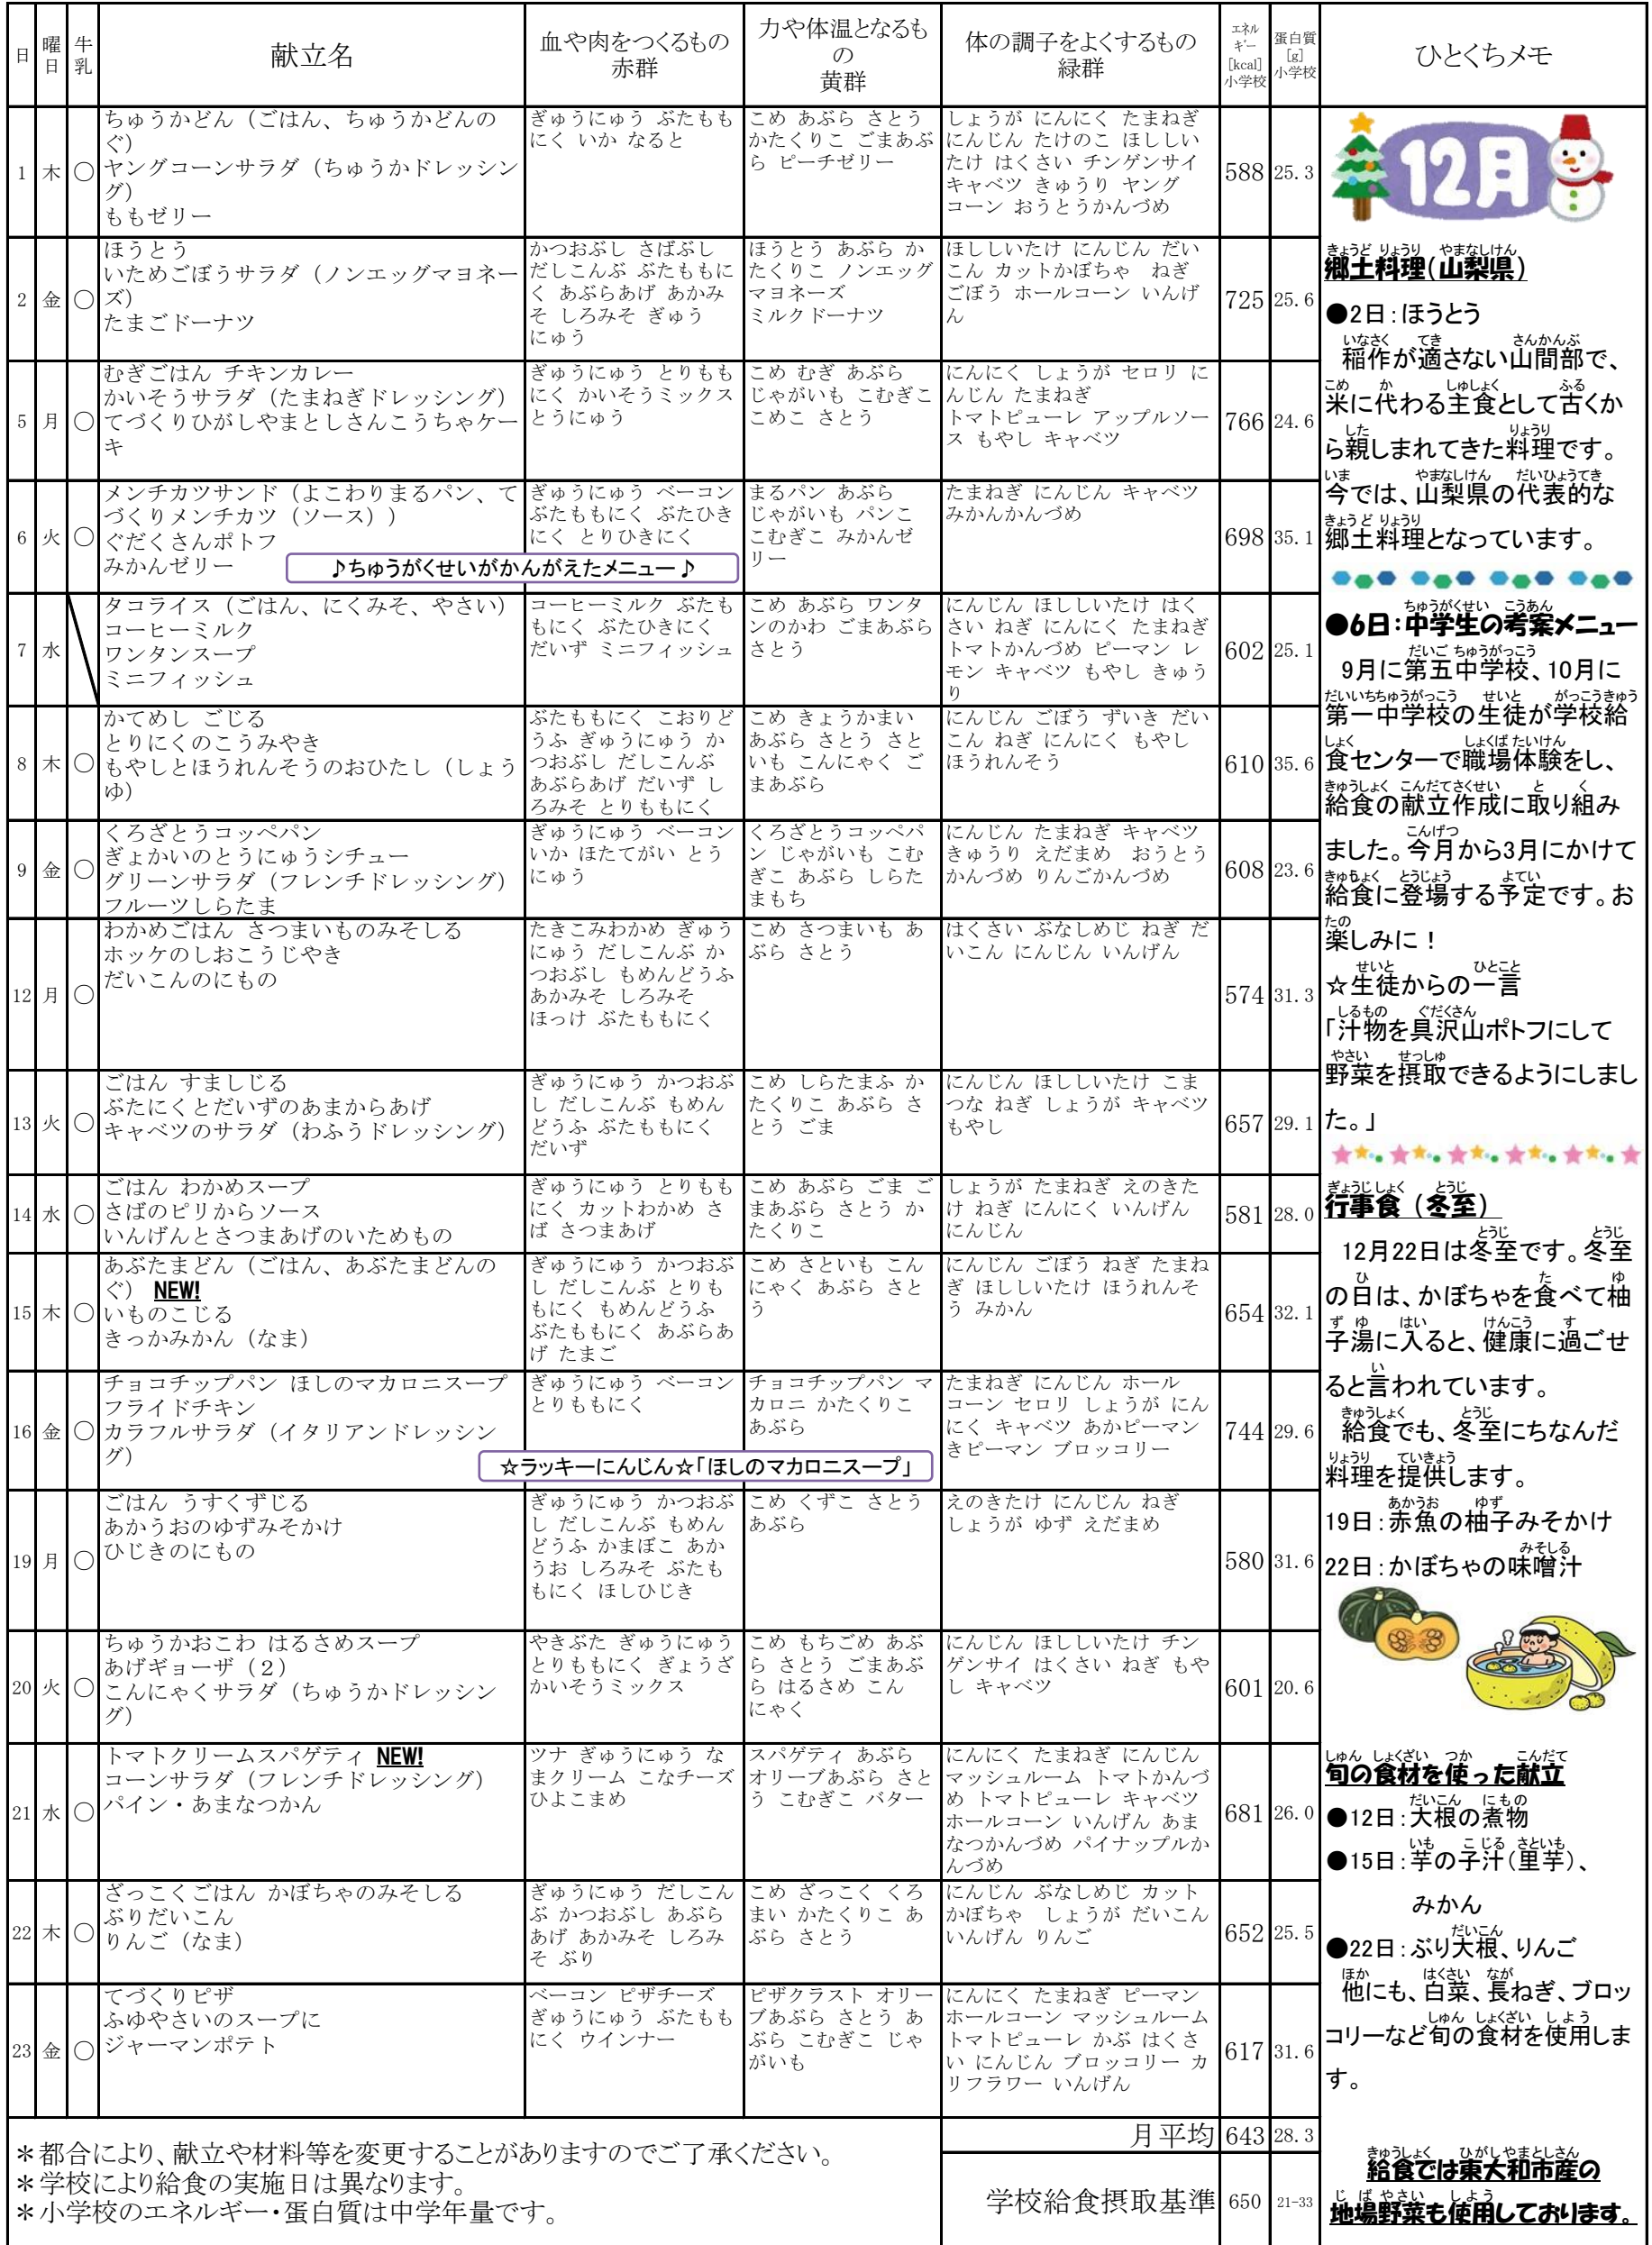 日
曜日
牛乳
献立名
血や肉をつくるもの
赤群
力や体温となるも
の
黄群
体の調子をよくするもの
緑群
エネル
ギー
[kcal]
小学校
蛋白質
[g]
小学校
ひとくちメモ
1
木
○
ちゅうかどん（ごはん、ちゅうかどんの
ぐ）
ヤングコーンサラダ（ちゅうかドレッシン
グ）
ももゼリー
ぎゅうにゅう ぶたもも
にく いか なると
こめ あぶら さとう
かたくりこ ごまあぶ
ら ピーチゼリー
しょうが にんにく たまねぎ
にんじん たけのこ ほししい
たけ はくさい チンゲンサイ
キャベツ きゅうり ヤング
コーン おうとうかんづめ
588
25.3
2
金
○
ほうとう
いためごぼうサラダ（ノンエッグマヨネー
ズ）
たまごドーナツ
かつおぶし さばぶし
だしこんぶ ぶたももに
く あぶらあげ あかみ
そ しろみそ ぎゅう
にゅう
ほうとう あぶら か
たくりこ ノンエッグ
マヨネーズ
ミルクドーナツ
ほししいたけ にんじん だい
こん カットかぼちゃ　ねぎ
ごぼう ホールコーン いんげ
ん
725
25.6
5
月
○
むぎごはん チキンカレー
かいそうサラダ（たまねぎドレッシング）
てづくりひがしやまとしさんこうちゃケー
キ
ぎゅうにゅう とりもも
にく かいそうミックス
とうにゅう
こめ むぎ あぶら
じゃがいも こむぎこ
こめこ さとう
にんにく しょうが セロリ に
んじん たまねぎ
トマトピューレ アップルソー
ス もやし キャベツ
766
24.6
6
火
○
メンチカツサンド（よこわりまるパン、て
づくりメンチカツ（ソース））
ぐだくさんポトフ
みかんゼリー
♪ちゅうがくせいがかんがえたメニュー♪
ぎゅうにゅう ベーコン
ぶたももにく ぶたひき
にく とりひきにく
まるパン あぶら
じゃがいも パンこ
こむぎこ みかんゼ
リー
たまねぎ にんじん キャベツ
みかんかんづめ
698
35.1
7
水
タコライス（ごはん、にくみそ、やさい）
コーヒーミルク
ワンタンスープ
ミニフィッシュ
コーヒーミルク ぶたも
もにく ぶたひきにく
だいず ミニフィッシュ
こめ あぶら ワンタ
ンのかわ ごまあぶら
さとう
にんじん ほししいたけ はく
さい ねぎ にんにく たまねぎ
トマトかんづめ ピーマン レ
モン キャベツ もやし きゅう
り
602
25.1
8
木
○
かてめし ごじる
とりにくのこうみやき
もやしとほうれんそうのおひたし（しょう
ゆ）
ぶたももにく こおりど
うふ ぎゅうにゅう か
つおぶし だしこんぶ
あぶらあげ だいず し
ろみそ とりももにく
こめ きょうかまい
あぶら さとう さと
いも こんにゃく ご
まあぶら
にんじん ごぼう ずいき だい
こん ねぎ にんにく もやし
ほうれんそう
610
35.6
9
金
○
くろざとうコッペパン
ぎょかいのとうにゅうシチュー
グリーンサラダ（フレンチドレッシング）
フルーツしらたま
ぎゅうにゅう ベーコン
いか ほたてがい とう
にゅう
くろざとうコッペパ
ン じゃがいも こむ
ぎこ あぶら しらた
まもち
にんじん たまねぎ キャベツ
きゅうり えだまめ　おうとう
かんづめ りんごかんづめ
608
23.6
12
月
○
わかめごはん さつまいものみそしる
ホッケのしおこうじやき
だいこんのにもの
たきこみわかめ ぎゅう
にゅう だしこんぶ か
つおぶし もめんどうふ
あかみそ しろみそ
ほっけ ぶたももにく
こめ さつまいも あ
ぶら さとう
はくさい ぶなしめじ ねぎ だ
いこん にんじん いんげん
574
31.3
13
火
○
ごはん すましじる
ぶたにくとだいずのあまからあげ
キャベツのサラダ（わふうドレッシング）
ぎゅうにゅう かつおぶ
し だしこんぶ もめん
どうふ ぶたももにく
だいず
こめ しらたまふ か
たくりこ あぶら さ
とう ごま
にんじん ほししいたけ こま
つな ねぎ しょうが キャベツ
もやし
657
29.1
14
水
○
ごはん わかめスープ
さばのピリからソース
いんげんとさつまあげのいためもの
ぎゅうにゅう とりもも
にく カットわかめ さ
ば さつまあげ
こめ あぶら ごま ご
まあぶら さとう か
たくりこ
しょうが たまねぎ えのきた
け ねぎ にんにく いんげん
にんじん
581
28.0
15
木
○
あぶたまどん（ごはん、あぶたまどんの
ぐ） NEW!
いものこじる
きっかみかん（なま）
ぎゅうにゅう かつおぶ
し だしこんぶ とりも
もにく もめんどうふ
ぶたももにく あぶらあ
げ たまご
こめ さといも こん
にゃく あぶら さと
う
にんじん ごぼう ねぎ たまね
ぎ ほししいたけ ほうれんそ
う みかん
654
32.1
16
金
○
チョコチップパン ほしのマカロニスープ
フライドチキン
カラフルサラダ（イタリアンドレッシン
グ）
☆ラッキーにんじん☆「ほしのマカロニスープ」
ぎゅうにゅう ベーコン
とりももにく
チョコチップパン マ
カロニ かたくりこ
あぶら
たまねぎ にんじん ホール
コーン セロリ しょうが にん
にく キャベツ あかピーマン
きピーマン ブロッコリー
744
29.6
19
月
○
ごはん うすくずじる
あかうおのゆずみそかけ
ひじきのにもの
ぎゅうにゅう かつおぶ
し だしこんぶ もめん
どうふ かまぼこ あか
うお しろみそ ぶたも
もにく ほしひじき
こめ くずこ さとう
あぶら
えのきたけ にんじん ねぎ
しょうが ゆず えだまめ
580
31.6
20
火
○
ちゅうかおこわ はるさめスープ
あげギョーザ（２）
こんにゃくサラダ（ちゅうかドレッシン
グ）
やきぶた ぎゅうにゅう
とりももにく ぎょうざ
かいそうミックス
こめ もちごめ あぶ
ら さとう ごまあぶ
ら はるさめ こん
にゃく
にんじん ほししいたけ チン
ゲンサイ はくさい ねぎ もや
し キャベツ
601
20.6
21
水
○
トマトクリームスパゲティ NEW!
コーンサラダ（フレンチドレッシング）
パイン・あまなつかん
ツナ ぎゅうにゅう な
まクリーム こなチーズ
ひよこまめ
スパゲティ あぶら
オリーブあぶら さと
う こむぎこ バター
にんにく たまねぎ にんじん
マッシュルーム トマトかんづ
め トマトピューレ キャベツ
ホールコーン いんげん あま
なつかんづめ パイナップルか
んづめ
681
26.0
22
木
○
ざっこくごはん かぼちゃのみそしる
ぶりだいこん
りんご（なま）
ぎゅうにゅう だしこん
ぶ かつおぶし あぶら
あげ あかみそ しろみ
そ ぶり
こめ ざっこく くろ
まい かたくりこ あ
ぶら さとう
にんじん ぶなしめじ カット
かぼちゃ　しょうが だいこん
いんげん りんご
652
25.5
23
金
○
てづくりピザ
ふゆやさいのスープに
ジャーマンポテト
ベーコン ピザチーズ
ぎゅうにゅう ぶたもも
にく ウインナー
ピザクラスト オリー
ブあぶら さとう あ
ぶら こむぎこ じゃ
がいも
にんにく たまねぎ ピーマン
ホールコーン マッシュルーム
トマトピューレ かぶ はくさ
い にんじん ブロッコリー カ
リフラワー いんげん
617
31.6
＊都合により、献立や材料等を変更することがありますのでご了承ください。
＊学校により給食の実施日は異なります。
＊小学校のエネルギー・蛋白質は中学年量です。
月平均
643
28.3
学校給食摂取基準
650
21-33
12月
きょうど りょうり　やまなしけん
郷土料理(山梨県)
●2日：ほうとう
いなさく　てき　さんかんぶ
稲作が適さない山間部で、
こめ　か　しゅしょく　ふる
米に代わる主食として古くか
した　りょうり
ら親しまれてきた料理です。
いま　やまなしけん　だいひょうてき
今では、山梨県の代表的な
きょうど りょうり
郷土料理となっています。
ちゅうがくせい　こうあん
●6日：中学生の考案メニュー
だいご ちゅうがっこう
9月に第五中学校、10月に
だいいちちゅうがっこう　せいと　がっこうきゅう
第一中学校の生徒が学校給
しょく　しょくば たいけん
食センターで職場体験をし、
きゅうしょく こんだてさくせい　と　く
給食の献立作成に取り組み
こんげつ
ました。今月から3月にかけて
きゅうしょく とうじょう　よてい
給食に登場する予定です。お
たの
楽しみに！
せいと　ひとこと
☆生徒からの一言
しるもの　ぐだくさん
「汁物を具沢山ポトフにして
やさい　せっしゅ
野菜を摂取できるようにしまし
た。」
ぎょうじしょく　とうじ
行事食（冬至）
とうじ　とうじ
12月22日は冬至です。冬至
ひ　た　ゆ
の日は、かぼちゃを食べて柚
ず ゆ　はい　けんこう　す
子湯に入ると、健康に過ごせ
い
ると言われています。
きゅうしょく　とうじ
給食でも、冬至にちなんだ
りょうり　ていきょう
料理を提供します。
あかうお　ゆず
19日：赤魚の柚子みそかけ
みそしる
22日：かぼちゃの味噌汁
しゅん しょくざい つか　こんだて
旬の食材を使った献立
だいこん　にもの
●12日：大根の煮物
いも　こ じる さといも
●15日：芋の子汁(里芋)、
みかん
だいこん
●22日：ぶり大根、りんご
ほか　はくさい　なが
他にも、白菜、長ねぎ、ブロッ
しゅん しょくざい しよう
コリーなど旬の食材を使用しま
す。
きゅうしょく　ひがしやまとしさん
給食では東大和市産の
じ ば やさい　しよう
地場野菜も使用しております。